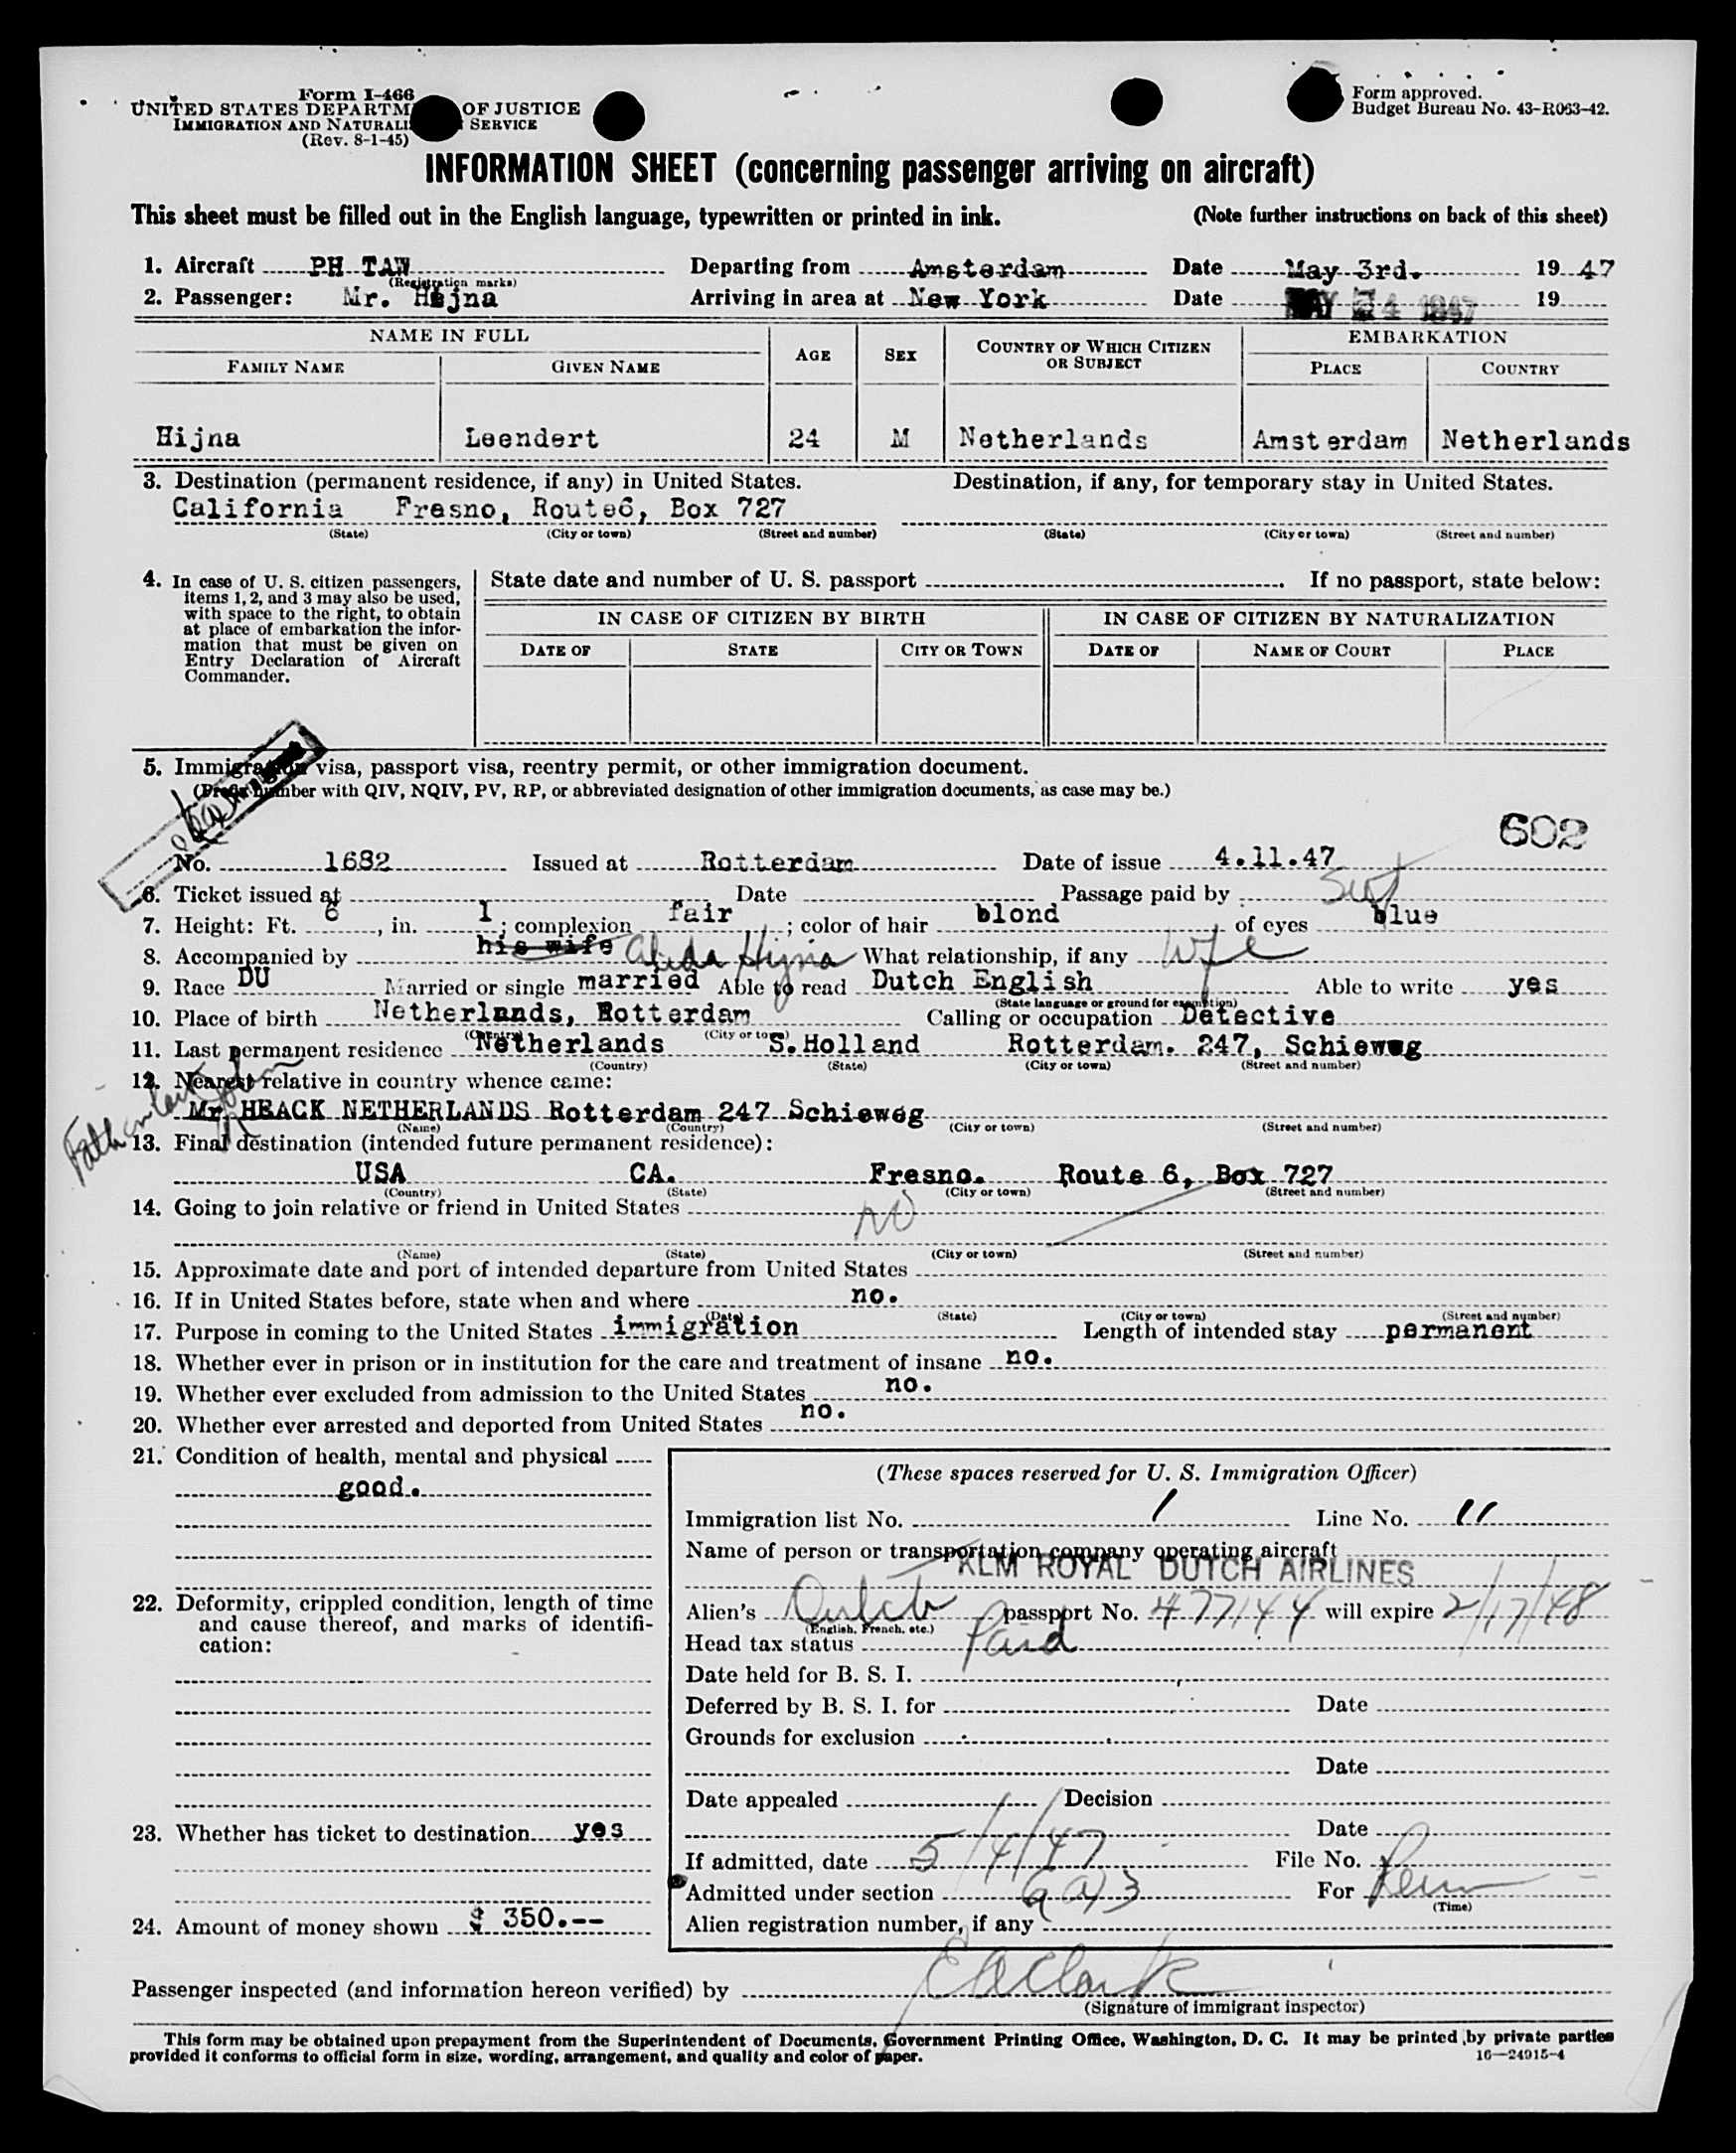 Form I-466
UNITED STATES DEPARTM OF JUSTICE
IMMIGRATION AND NATURALI SERVICE
(Rev. 8-1-45)
Form approved.
Budget Bureau No. 43-R063-42.
INFORMATION SHEET (concerning passenger arriving on aircraft)
This sheet must be filled out in the English language, typewritten or printed in ink. (Note further instructions on back of this sheet)
1. Aircraft PH TAW Departing from Amsterdam Date May 3rd. 19 47
(Registration marks)
2. Passenger: Mr. Hijna Arriving in area at New York Date MAY 4 1947 19
NAME IN FULL AGE SEX COUNTRY OF WHICH CITIZEN OR SUBJECT EMBARKATION
FAMILY NAME GIVEN NAME PLACE COUNTRY
Hijna Leendert 24 M Netherlands Amsterdam Netherlands
3. Destination (permanent residence, if any) in United States. Destination, if any, for temporary stay in United States.
California Fresno, Route6, Box 727
(State) (City or town) (Street and number) (State) (City or town) (Street and number)
4. In case of U. S. citizen passengers, items 1, 2, and 3 may also be used, with space to the right, to obtain at place of embarkation the information that must be given on Entry Declaration of Aircraft Commander.
State date and number of U. S. passport . If no passport, state below:
IN CASE OF CITIZEN BY BIRTH IN CASE OF CITIZEN BY NATURALIZATION
DATE OF STATE CITY OR TOWN DATE OF NAME OF COURT PLACE
5. Immigration visa, passport visa, reentry permit, or other immigration document.
(Prefix number with QIV, NQIV, PV, RP, or abbreviated designation of other immigration documents, as case may be.)
602
No. 1682 Issued at Rotterdam Date of issue 4.11.47
6. Ticket issued at Date Passage paid by Self
7. Height: Ft. 6, in. 1; complexion fair; color of hair blond of eyes blue
8. Accompanied by his wife Alida Hijna What relationship, if any Wife
9. Race DU Married or single married Able to read Dutch English Able to write yes
(State language or ground for exemption)
10. Place of birth Netherlands, Rotterdam Calling or occupation Detective
(Country) (City or town)
11. Last permanent residence Netherlands S.Holland Rotterdam. 247, Schieweg
(Country) (State) (City or town) (Street and number)
12. Nearest relative in country whence came:
Mr HBACK NETHERLANDS Rotterdam 247 Schieweg
(Name) (Country) (City or town) (Street and number)
13. Final destination (intended future permanent residence):
USA CA. Fresno. Route 6, Box 727
(Country) (State) (City or town) (Street and number)
14. Going to join relative or friend in United States NO
(Name) (State) (City or town) (Street and number)
15. Approximate date and port of intended departure from United States
16. If in United States before, state when and where no.
(Date) (State) (City or town) (Street and number)
17. Purpose in coming to the United States immigration Length of intended stay permanent
18. Whether ever in prison or in institution for the care and treatment of insane no.
19. Whether ever excluded from admission to the United States no.
20. Whether ever arrested and deported from United States no.
21. Condition of health, mental and physical
good.
22. Deformity, crippled condition, length of time
and cause thereof, and marks of identifi-
cation:
23. Whether has ticket to destination yes
24. Amount of money shown $ 350.--
(These spaces reserved for U. S. Immigration Officer)
Immigration list No. 1 Line No. 11
Name of person or transportation company operating aircraft
KLM ROYAL DUTCH AIRLINES
Alien's Dutch passport No. 477144 will expire 2/17/48
(English, French, etc.)
Head tax status Paid
Date held for B. S. I.
Deferred by B. S. I. for Date
Grounds for exclusion
Date
Date appealed Decision
Date
If admitted, date 5/4/47 File No.
Admitted under section 6 a 3 For Perm
(Time)
Alien registration number, if any
Passenger inspected (and information hereon verified) by E A Clark
(Signature of immigrant inspector)
This form may be obtained upon prepayment from the Superintendent of Documents, Government Printing Office, Washington, D. C. It may be printed by private parties
provided it conforms to official form in size, wording, arrangement, and quality and color of paper.
16—24915-4